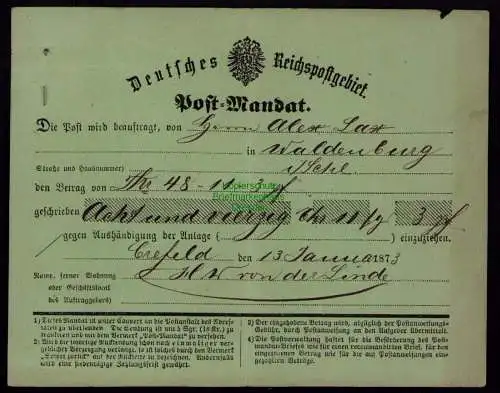 Deutsches Reichspostgebiet.
Post-Mandat.
Die Post wird beauftragt, von Herrn Alex Sax
in Waldenburg
Straße und Hausnummer) i/Schl.
den Betrag von Thr 48 - 11 - 3 pf
geschrieben Acht und vierzig Thr 11 fg 3 pf
gegen Aushändigung der Anlage ) einzuziehen.
Crefeld den 13 Januar 1873
Name, ferner Wohnung
oder Geschäftslokal
des Auftraggebers)
H W von der Linde
1) Dieses Mandat in einem Couvert an die Postanstalt des Adressaten zu übersenden. Die Sendung ist mit 5 Sgr. (18 Kr.) zu frankiren und mit dem Vermerk „Post-Mandat" zu versehen.
2) Wird die vorherige Rücksendung schon nach einmaliger vergeblicher Vorzeigung verlangt, so ist dieses durch den Vermerk „Sofort zurück" auf der Rückseite zu bezeichnen. Andernfalls wird eine siebentägige Zahlungsfrist gewährt.
3) Der eingehobene Betrag wird, abzüglich der Postanweisungs-Gebühr, durch Postanweisung an den Aufgeber übermittelt.
4) Die Postverwaltung haftet für die Beförderung des Postmandat-Briefes wie für einen recommandirten Brief, für den eingezogenen Betrag wie für die auf Postanweisungen eingezahlten Beträge.